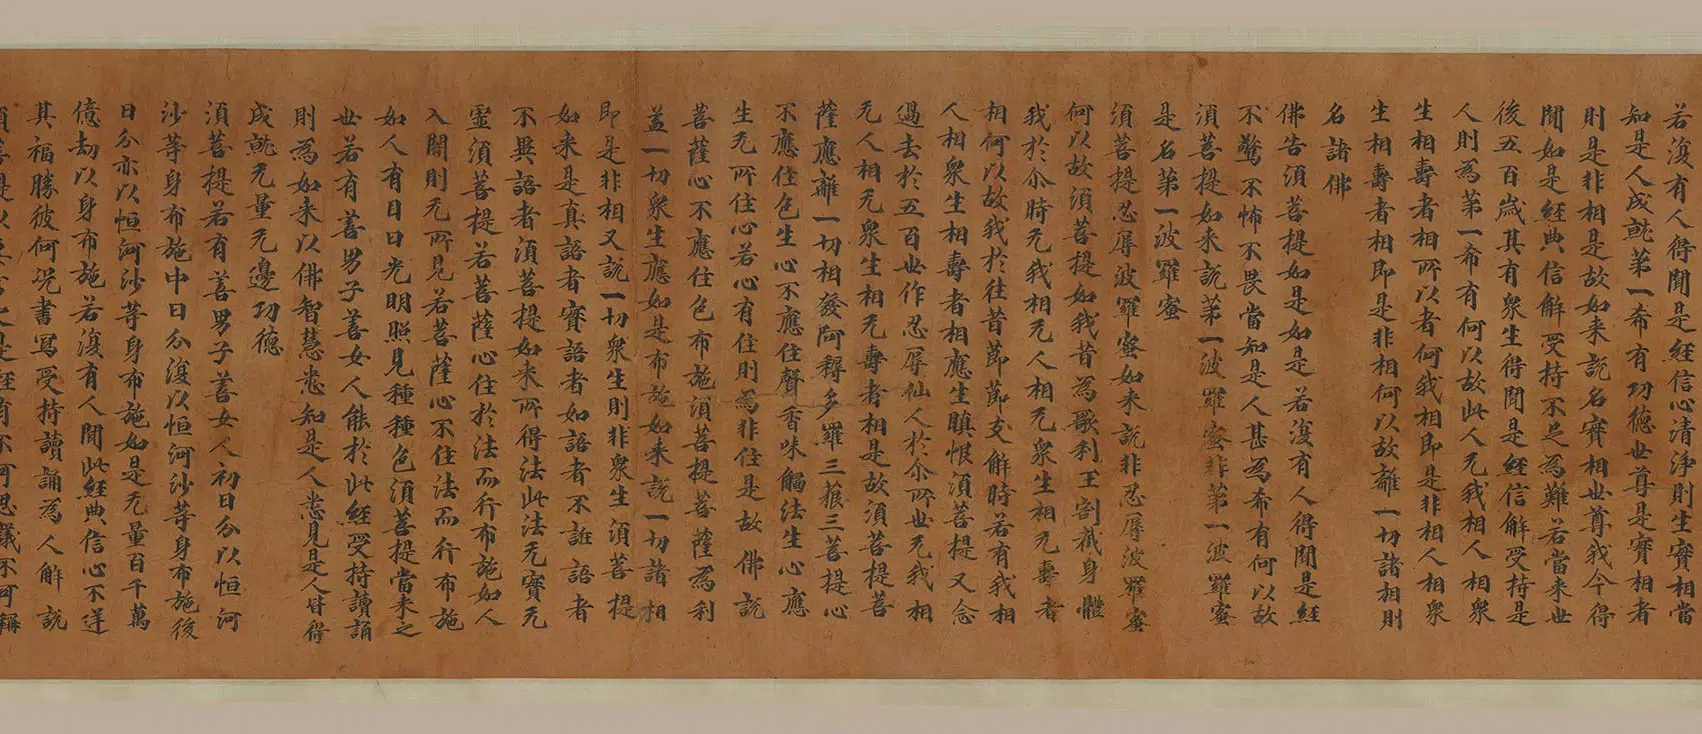 若復有人得聞是經信心清淨則生實相當
知是人成就第一希有功德世尊是實相者
則是非相是故如来說名實相世尊我今得
聞如是經典信解受持不足為難若當来世
後五百歲其有衆生得聞是經信解受持是
人則為第一希有何以故此人无我相人相衆
生相壽者相所以者何我相即是非相人相衆
生相壽者相即是非相何以故離一切諸相則
名諸佛
佛告須菩提如是如是若復有人得聞是經
不驚不怖不畏當知是人甚為希有何以故
須菩提如来說第一波羅蜜非第一波羅蜜
是名第一波羅蜜
須菩提忍辱波羅蜜如来說非忍辱波羅蜜
何以故須菩提如我昔為歌利王割截身體
我於尒時无我相无人相无衆生相无壽者
相何以故我於往昔節節支解時若有我相
人相衆生相壽者相應生瞋恨須菩提又念
過去於五百世作忍辱仙人於尒所世无我相
无人相无衆生相无壽者相是故須菩提菩
薩應離一切相發阿耨多羅三藐三菩提心
不應住色生心不應住聲香味觸法生心應
生无所住心若心有住則為非住是故佛說
菩薩心不應住色布施須菩提菩薩為利
益一切衆生應如是布施如来說一切諸相
即是非相又說一切衆生則非衆生須菩提
如来是真語者實語者如語者不誑語者
不異語者須菩提如来所得法此法无實无
虛須菩提若菩薩心住於法而行布施如人
入闇則无所見若菩薩心不住法而行布施
如人有目日光明照見種種色須菩提當来之
世若有善男子善女人能於此經受持讀誦
則為如来以佛智慧悉知是人悉見是人皆得
成就无量无邊功德
須菩提若有善男子善女人初日分以恒河
沙等身布施中日分復以恒河沙等身布施後
日分亦以恒河沙等身布施如是无量百千萬
億劫以身布施若復有人聞此經典信心不逆
其福勝彼何況書寫受持讀誦為人解說
須菩提以要言之是經有不可思議不可稱